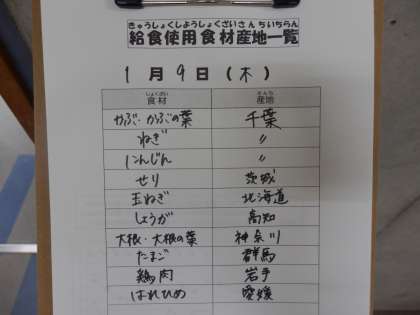 きゅうしょくしようしょくざいさんちいちらん
給食使用食材産地一覧
1月9日(木)
しょくざい さんち
食材 産地
かぶ・かぶの葉 千葉
ねぎ 〃
にんじん 〃
せり 茨城
玉ねぎ 北海道
しょうが 高知
大根・大根の葉 神奈川
たまご 群馬
鶏肉 岩手
はれひめ 愛媛